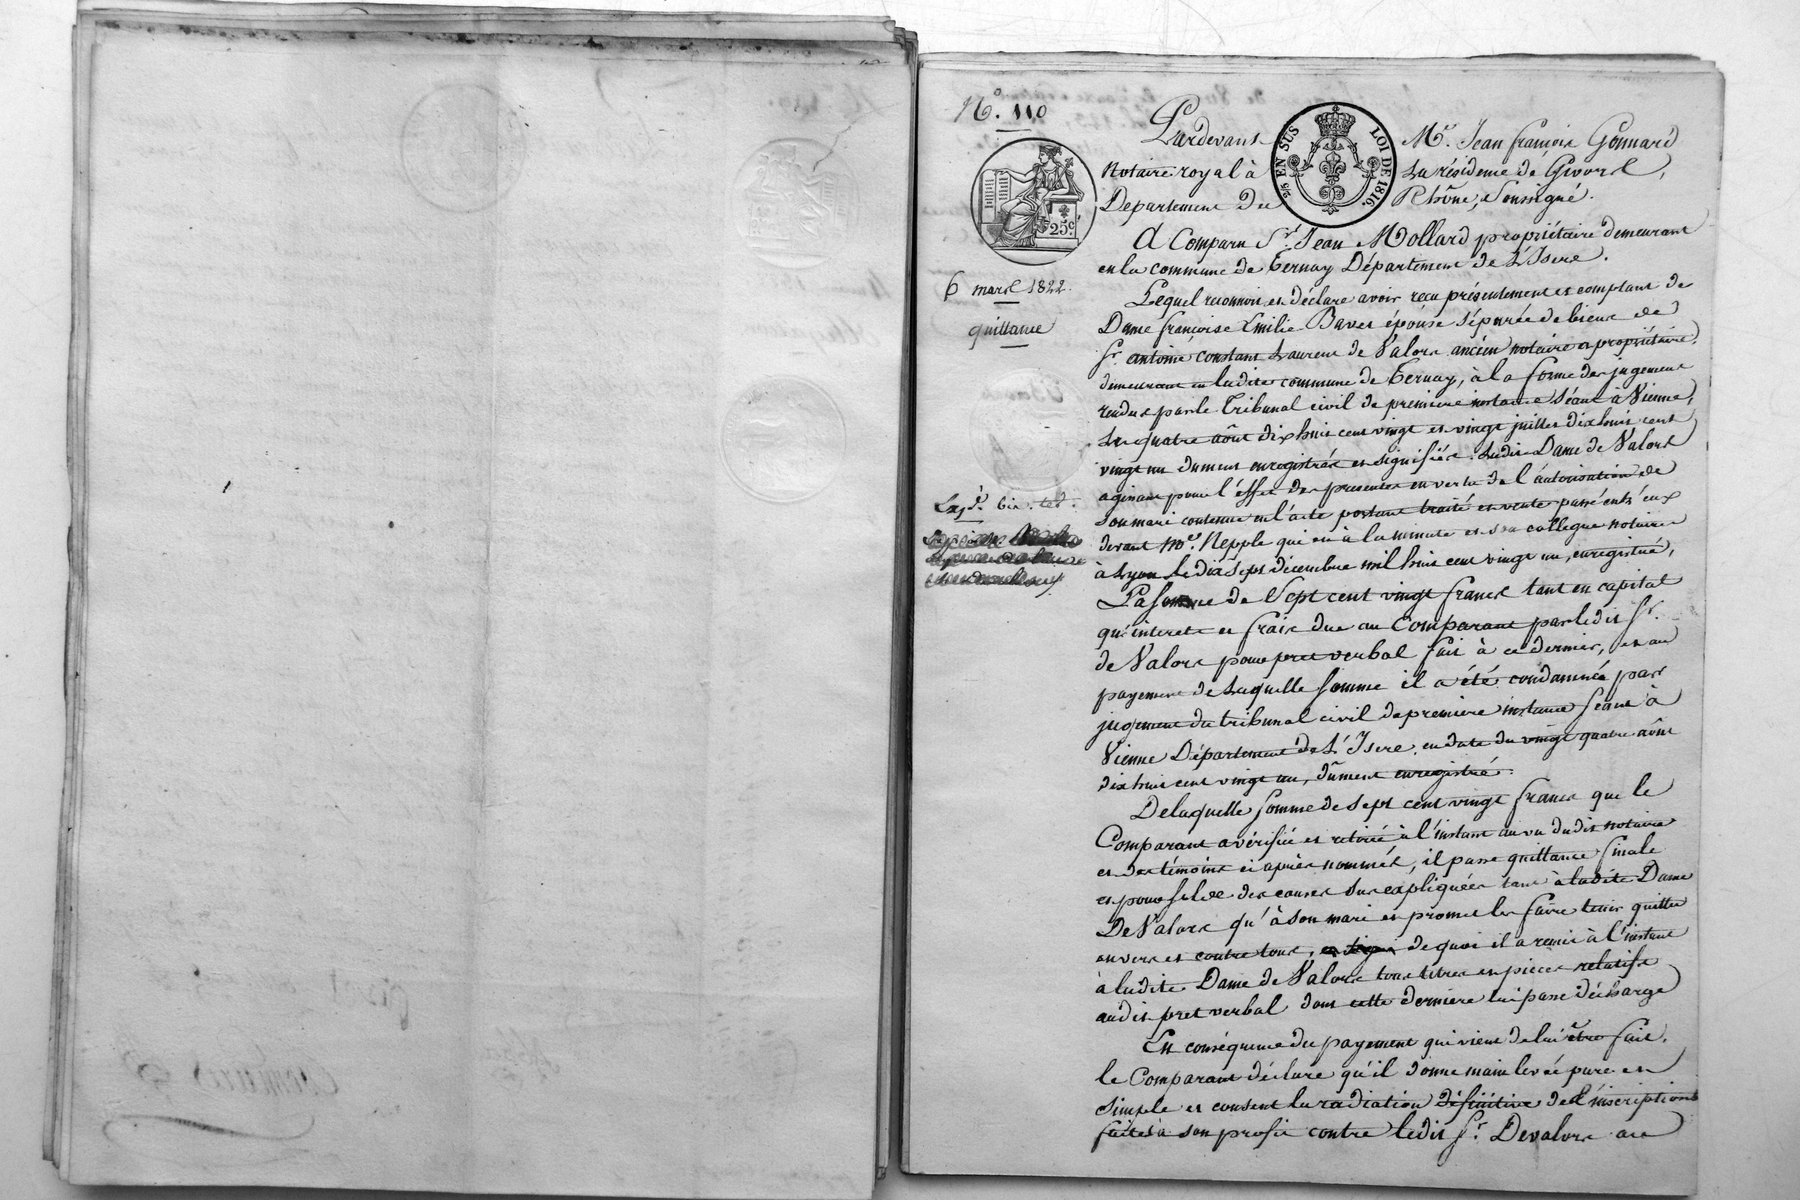 N°. 110
25c.
6 mars 1822.
quittance
Exp.
2/5 EN SUS LOI DE 1816.
Pardevant Me. Jean françois Gonnard
Notaire royal à La résidence de Givors,
Département du Rhône, Soussigné.
A Comparu Sr. Jean Mollard propriétaire demeurant
en la commune de Ternay Département de L'Isere.
Lequel reconnoit et déclare avoir recu présentement et comptant de
Dame françoise Emilie Baves épouse séparée de biens de
Sr. antoine constant Laurent de Valors ancien notaire et propriétaire,
demeurant en ladite commune de Ternay, à la forme des jugemens
rendus par le Tribunal civil de première instance Séant à Vienne,
Les quatre aôut dix huit cent vingt et vingt juillet dix huit cent
vingt un dument enregistrés et signifiés. Ladite Dame de Valors
agissant pour l'effet des presentes en vertu de l'autorisation de
son mari contenue en l'acte portant traité et vente passé entr'eux
devant Me. Nepple qui en à la minute et son collegue notaires
à Lyon Le dix sept décembre mil huit cent vingt un, enregistré,
La somme de Sept cent vingt francs tant en capital
qu'interets et frais due au Comparant par ledit Sr.
de Valors pour pret verbal fait à ce dernier, et au
payement de Laquelle somme il a été condamné par
jugement du tribunal civil de première instance séant à
Vienne Département de L'Isere, en date du vingt quatre aôut
dix huit cent vingt un, dûment enregistré.
De laquelle somme de sept cent vingt francs que le
Comparant a vérifiée et retirée à l'instant au vu dudit notaire
et des témoins ci après nommés, il passe quittance finale
et pour solde des causes sus expliquées tant à ladite Dame
De Valors qu'à son mari et promet les faire tenir quittes
envers et contre tous, de quoi il a remis à l'instant
à ladite Dame de Valors tous titres et pièces relatifs
audit pret verbal dont cette dernière lui passe décharge
En conséquence du payement qui vient de lui être fait,
le Comparant déclare qu'il donne main levée pure et
simple et consent la radiation définitive de l'inscription
faites à son profit contre ledit Sr. Devalors au